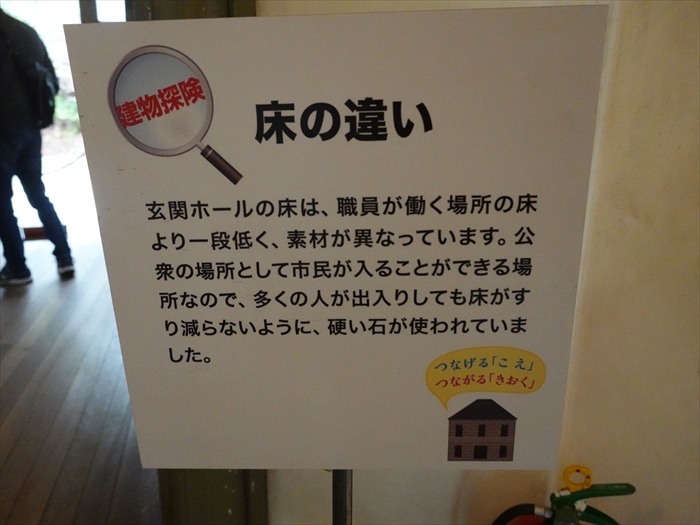 建物探険
床の違い
玄関ホールの床は、職員が働く場所の床
より一段低く、素材が異なっています。公
衆の場所として市民が入ることができる場
所なので、多くの人が出入りしても床がす
り減らないように、硬い石が使われていま
した。
つなげる「こえ」
つながる「きおく」